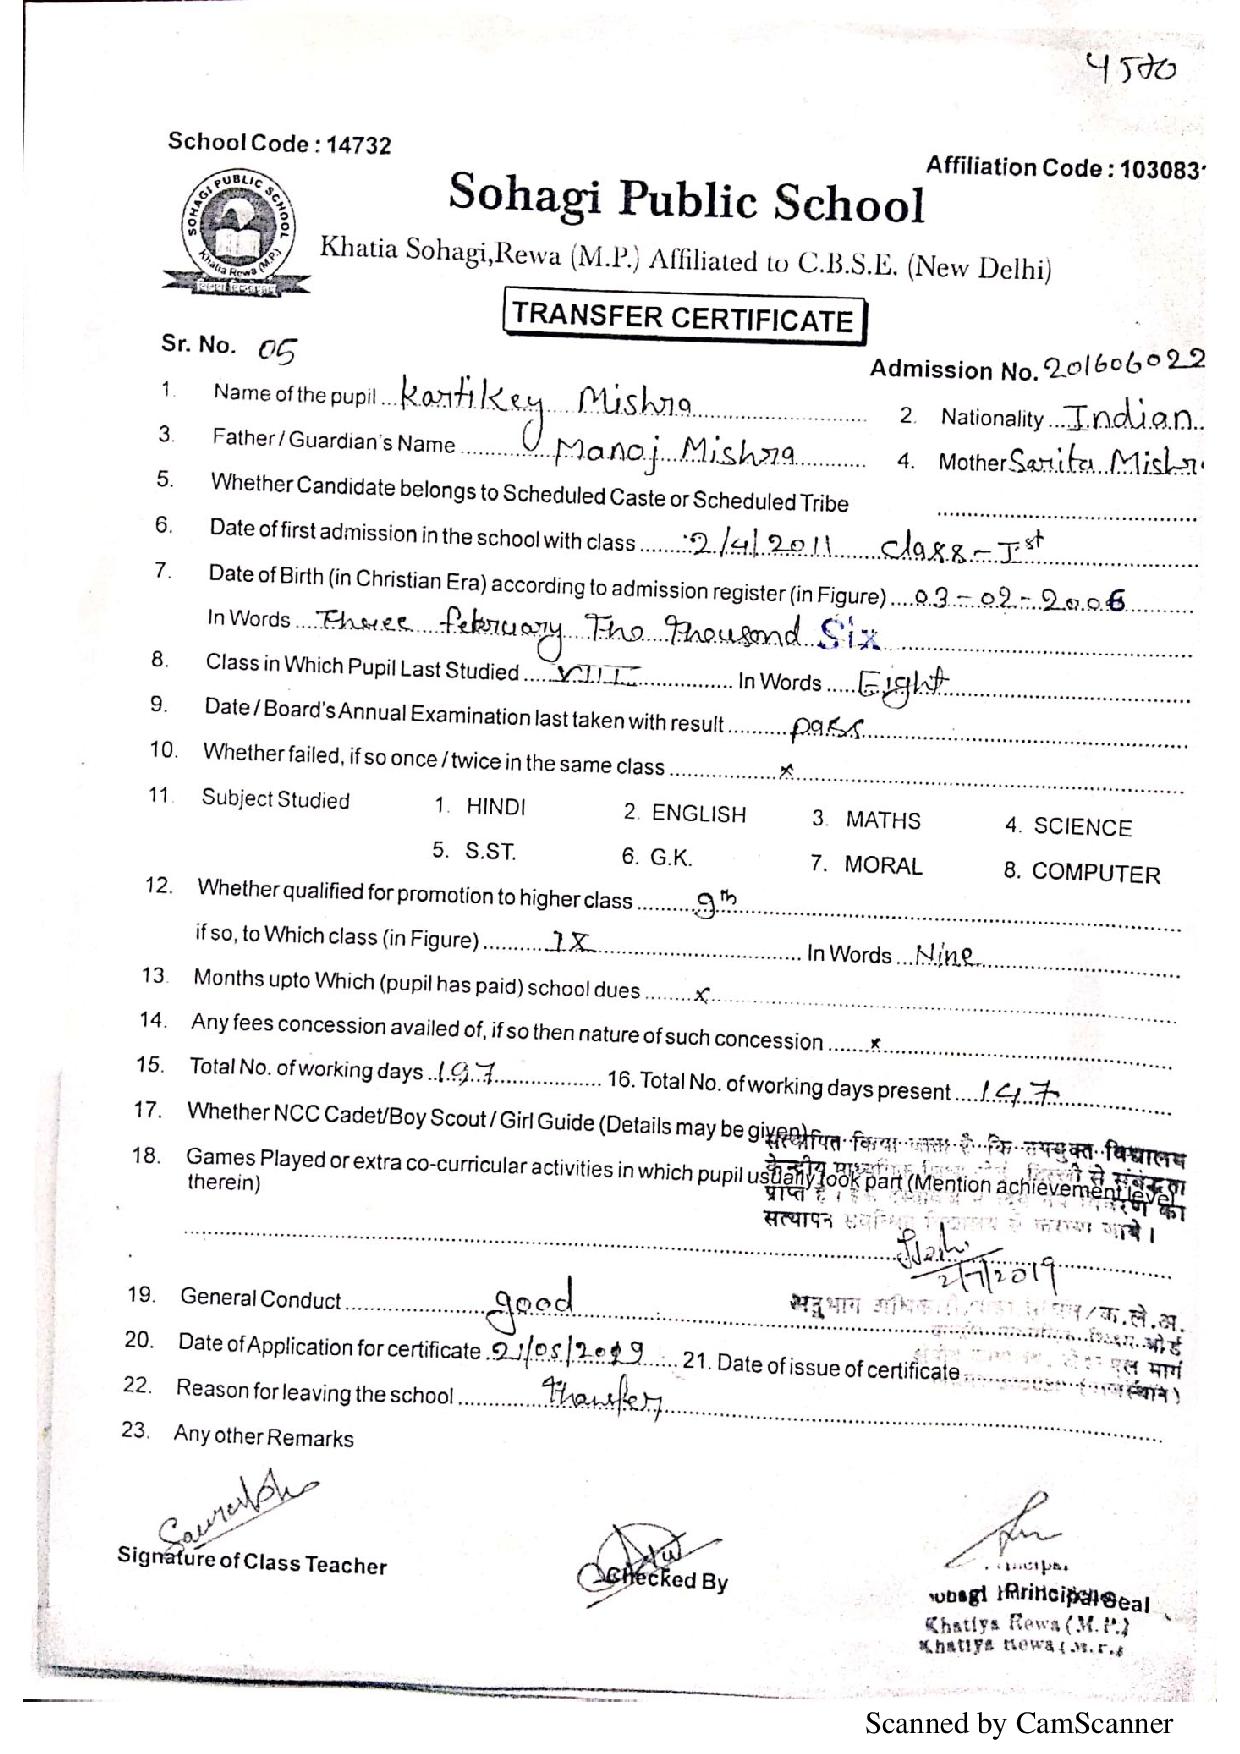 4570
School Code : 14732
Affiliation Code : 103083
SOHAGI PUBLIC SCHOOL
Khatia Rewa (M.P.)
Sohagi Public School
Khatia Sohagi,Rewa (M.P.) Affiliated to C.B.S.E. (New Delhi)
TRANSFER CERTIFICATE
Sr. No. 05
Admission No. 201606022
1. Name of the pupil Kartikey Mishra 2. Nationality Indian
3. Father / Guardian's Name Manoj Mishra 4. Mother Sarita Mishr
5. Whether Candidate belongs to Scheduled Caste or Scheduled Tribe
6. Date of first admission in the school with class 2/4/2011 class - Ist
7. Date of Birth (in Christian Era) according to admission register (in Figure) 03-02-2006
In Words Three february Tho thousond Six
8. Class in Which Pupil Last Studied VIII In Words Eight
9. Date / Board's Annual Examination last taken with result pass
10. Whether failed, if so once / twice in the same class x
11. Subject Studied 1. HINDI 2. ENGLISH 3. MATHS 4. SCIENCE
5. S.ST. 6. G.K. 7. MORAL 8. COMPUTER
12. Whether qualified for promotion to higher class 9th
if so, to Which class (in Figure) IX In Words Nine
13. Months upto Which (pupil has paid) school dues x
14. Any fees concession availed of, if so then nature of such concession x
15. Total No. of working days 197 16. Total No. of working days present 147
17. Whether NCC Cadet/Boy Scout / Girl Guide (Details may be given)
सत्यापित किया जाता है कि उपयुक्त विद्यालय
18. Games Played or extra co-curricular activities in which pupil usually took part (Mention achievement level
केन्द्रीय माध्यमिक से संबद्धता
therein)
प्राप्त है। का
सत्यापन जाये।
2/7/2019
19. General Conduct good
अनुभाग अधिकारी / क.ले.अ.
20. Date of Application for certificate 21/05/2019 21. Date of issue of certificate
22. Reason for leaving the school transfer
23. Any other Remarks
Signature of Class Teacher
Checked By
Principal Seal
Khatiya Rewa (M.P.)
Khatiya Rewa (M.P.)
Scanned by CamScanner